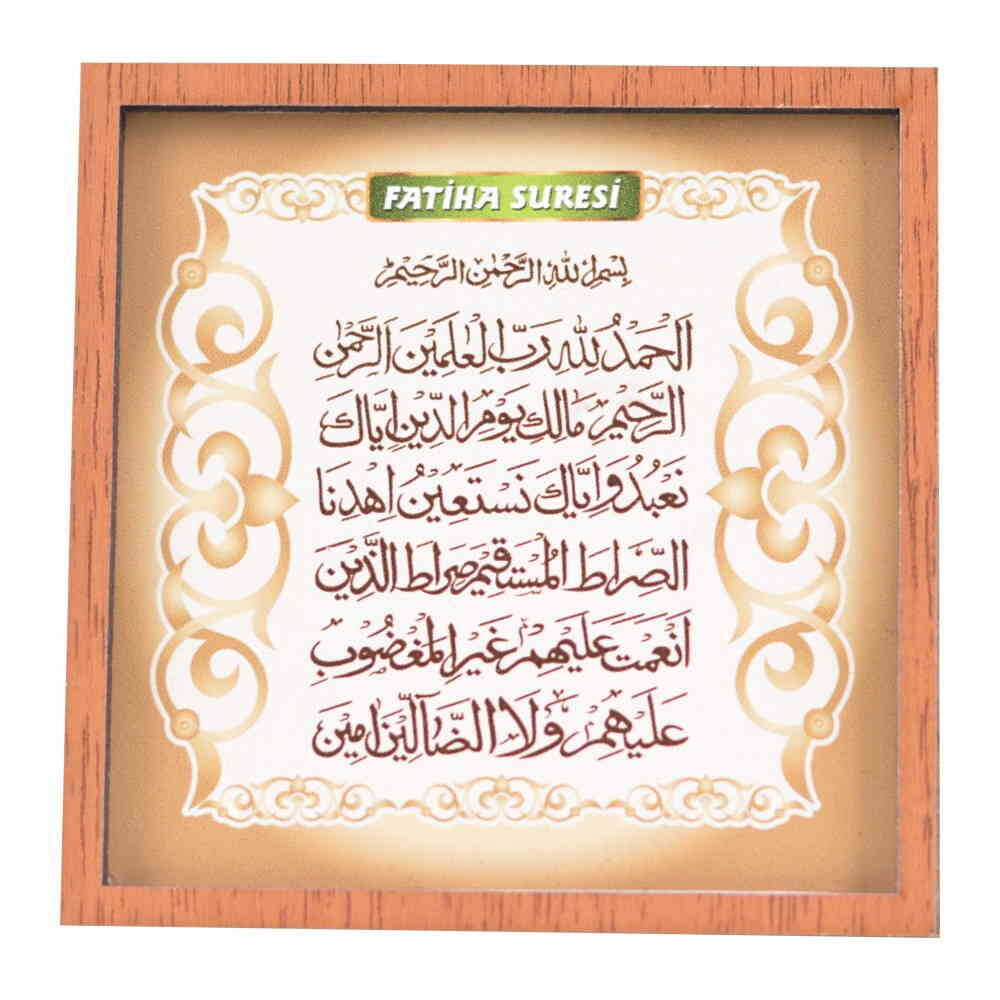 FATİHA SURESİ
بِسْمِ اللهِ الرَّحْمٰنِ الرَّحِيمِ
اَلْحَمْدُ لِلّٰهِ رَبِّ الْعَالَمِينَ اَلرَّحْمٰنِ
الرَّحِيمِ مَالِكِ يَوْمِ الدِّينِ اِيَّاكَ
نَعْبُدُ وَاِيَّاكَ نَسْتَعِينُ اِهْدِنَا
الصِّرَاطَ الْمُسْتَقِيمَ صِرَاطَ الَّذِينَ
اَنْعَمْتَ عَلَيْهِمْ غَيْرِ الْمَغْضُوبِ
عَلَيْهِمْ وَلَا الضَّٓالِّينَ اٰمِينَ